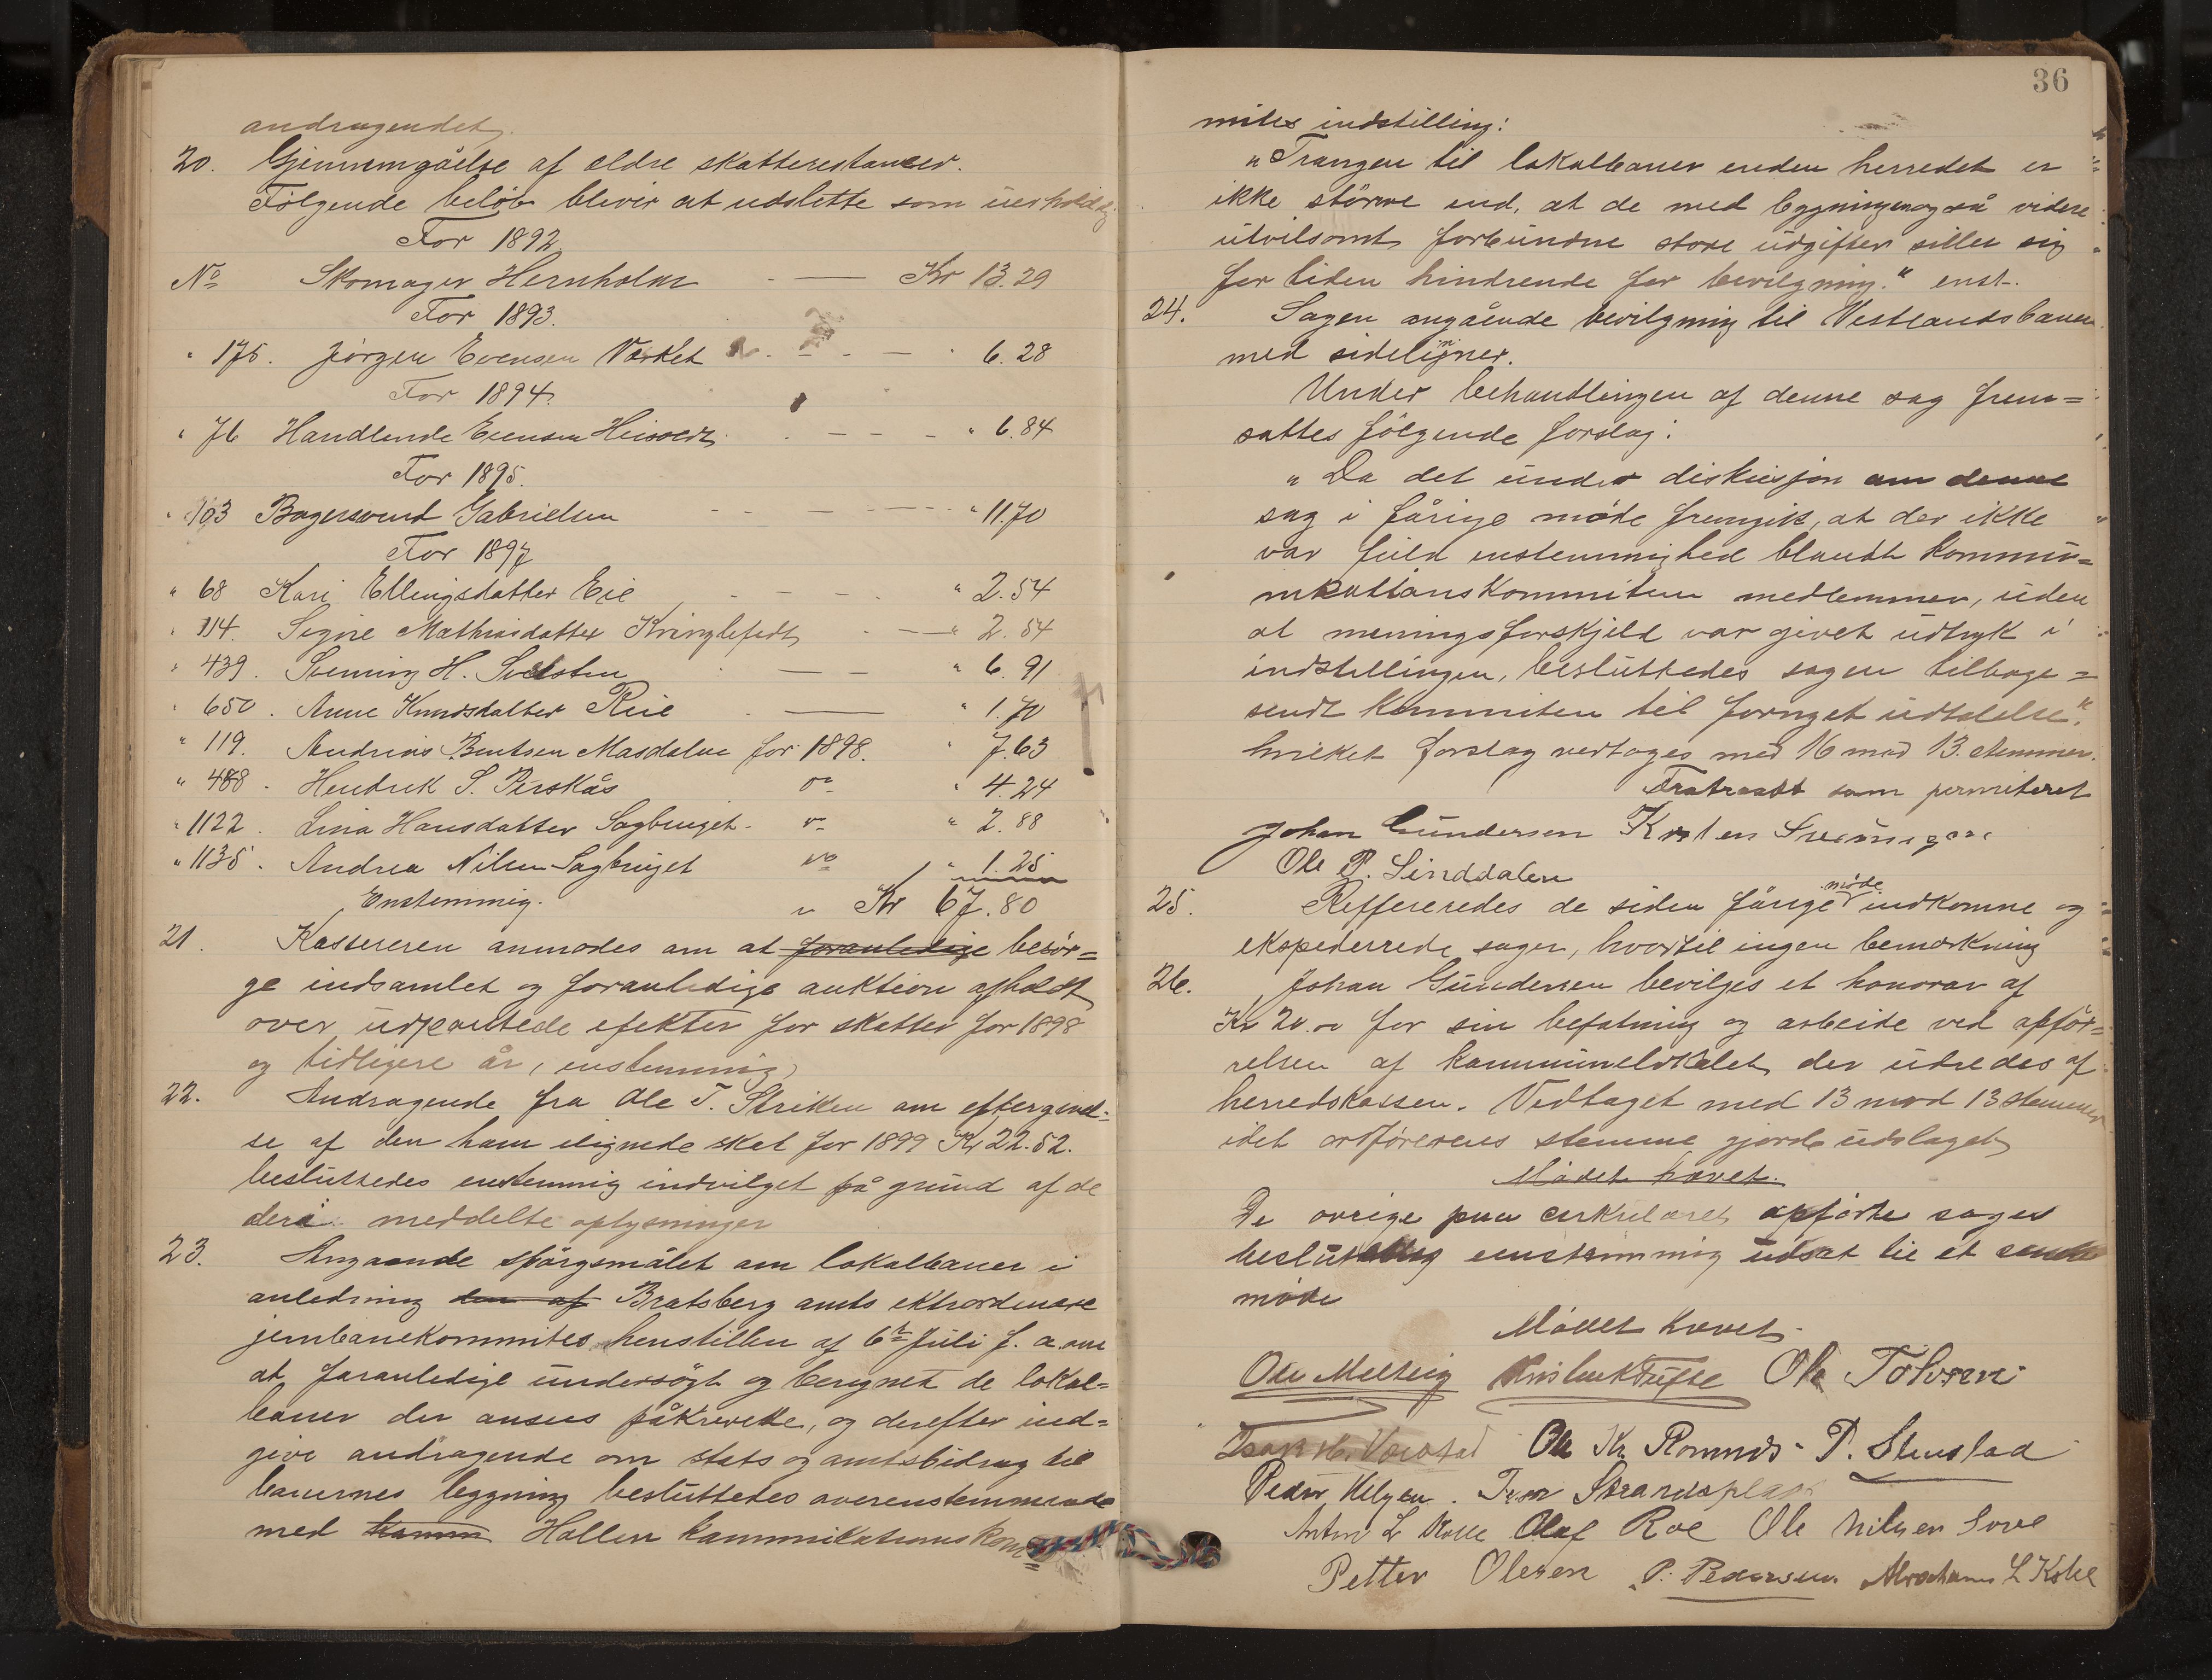 andragendet.
20. Gjennemgåelse af eldre skatterestancer.
Følgende beløb blever at udslette som uerholdelig
For 1892
No Skomager Hernholm — Kr 13.29
For 1893.
" 175. Jörgen Evensen Værket - — " 6.28
For 1894.
" 76 Handlende Evensen - - - " 6.84
For 1895.
" 103 Bagersvend Gabrielsen - - - " 11.70
For 1897
" 68 Kari Ellingsdatter Eie - - - " 2.54
" 114. Signe Mathiasdatter - — " 2.54
" 439. Svening H. — " 6.91
" 650. Anne Knudsdatter — " 1.70
" 119. Andreas Bentsen Masdalen for 1898. " 7.63
" 488 - Hendrik S. Pérskås do " 4.24
" 1122. Lina Hansdatter Sagbruget - do " 2.88
" 1135. Andrea Nilsen Sagbruget do " 1.25
Enstemmig. Kr 67.80
21. Kassereren anmodes om at foranledige besör=
ge indsamlet og foranledige auktion afholdt
over udpantede efekter for skatter for 1898
og tidligere år, enstemmig
22. Andragende fra Ole T. Striken om eftergivel=
se af den ham ilignede skat for 1899 Kr 22.52.
besluttedes enstemmig indvilget på grund af de
deri meddelte oplysninger
23. Angaaende spörgsmålet om lokalbaner i
anledning den af Bratsberg amts ekstrordinære
jernbanekommites henstillen af 6te Juli f. a. om
at foranledige undersögt og beregnet de lokal=
baner der ansees påkrevede, og derefter ind=
give andragende om stats og amtsbidrag til
banernes bygning besluttedes overenstemmende
med komm Hollen kommunikationskom=
36
mites indstilling:
"Trangen til lokalbaner enden herredet er
ikke större end, at de med bygningen også videre
utvilsomt forbundne store udgifter stiller sig
for tiden hindrende for bevilgning." enst.
24. Sagen angående bevilgning til Vestlandsbanen
med sidelinjer.
Under behandlingen af denne sag frem=
sattes fölgende forslag:
"Da det under diskusjon om denne
sag i forige möde fremgik, at der ikke
var fuld enstemmighed blandt kommu=
nikationskommiteen medlemmer, uden
at meningsforskjeld var givet udtryk i
indstillingen, besluttedes sagen tilbage=
sendt kommiteen til fornyet udtalelse."
hvilket forslag vedtoges med 16 mod 13. stemmer.
Fratraadt som permiteret
Johan Gundersen Kresten
Ole P. Linddalen
25. Reffereredes de siden forige möde indkomne og
ekspederrede sager, hvortil ingen bemerkning
26. Johan Gundersen bevilges et honorar af
Kr 20.00 for sin befatning og arbeide ved opför=
relsen af kommunelokalet der udredes af
herredskassen. Vedtaget med 13 mod 13 stemmer
idet ordförerens stemme gjorde udslaget
Mödet hævet.
De övrige paa cirkulæret opförte sager
besluttedes eenstemmig udsat til et senere
möde
Mödet hævet.
Ole Melteig Ole Tolvsen
Ole Kr. Romnes P. Stenstad
Peder Helgen. Iver Strandsplass
Anton L Olaf Roe Ole Nilsen Sove
Petter Olesen P. Pedersen Abraham L